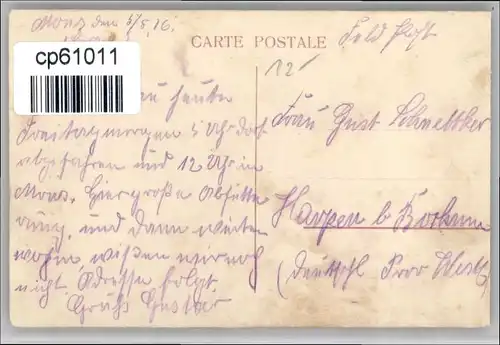 Mons den 5/5.16.
CARTE POSTALE
Feld Post
cp61011
12
heute
Freitagmorgen 5 Uhr dort
abgefahren und 12 Uhr in
Mons. Hier große Abfütte
rung, und dann weiter
wohin, wißen wir noch
nicht, Adresse folgt.
Gruß Gustav
Frau Gust Schnettker
Harpen b Bochum
(Deutschl Prov Westf)